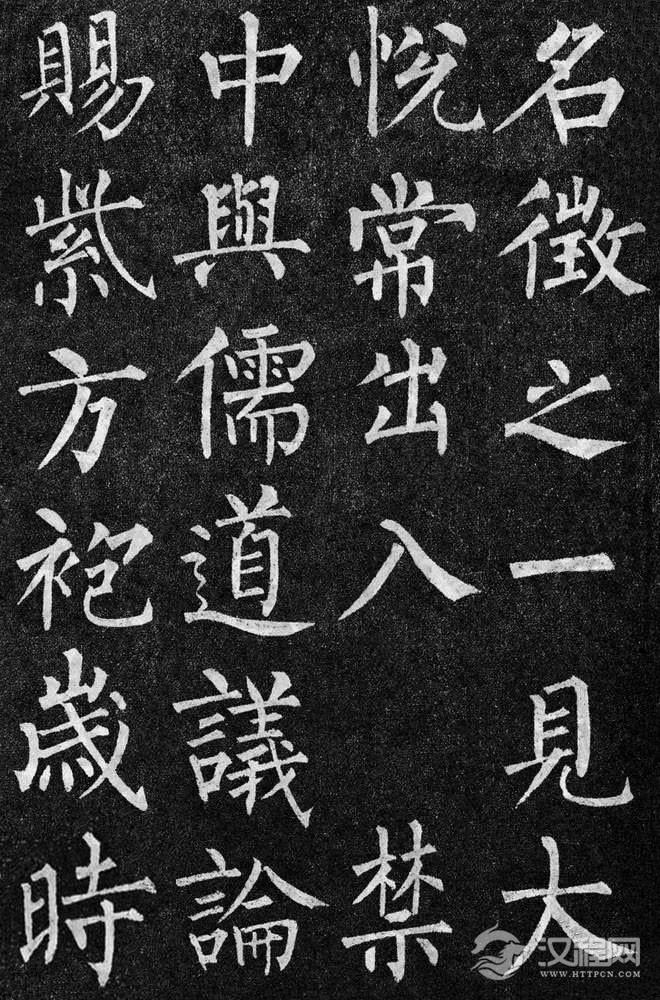 名徵之一見大
悅常出入禁
中與儒道議論
賜紫方袍歳時
汉程网
WWW.HTTPCN.COM